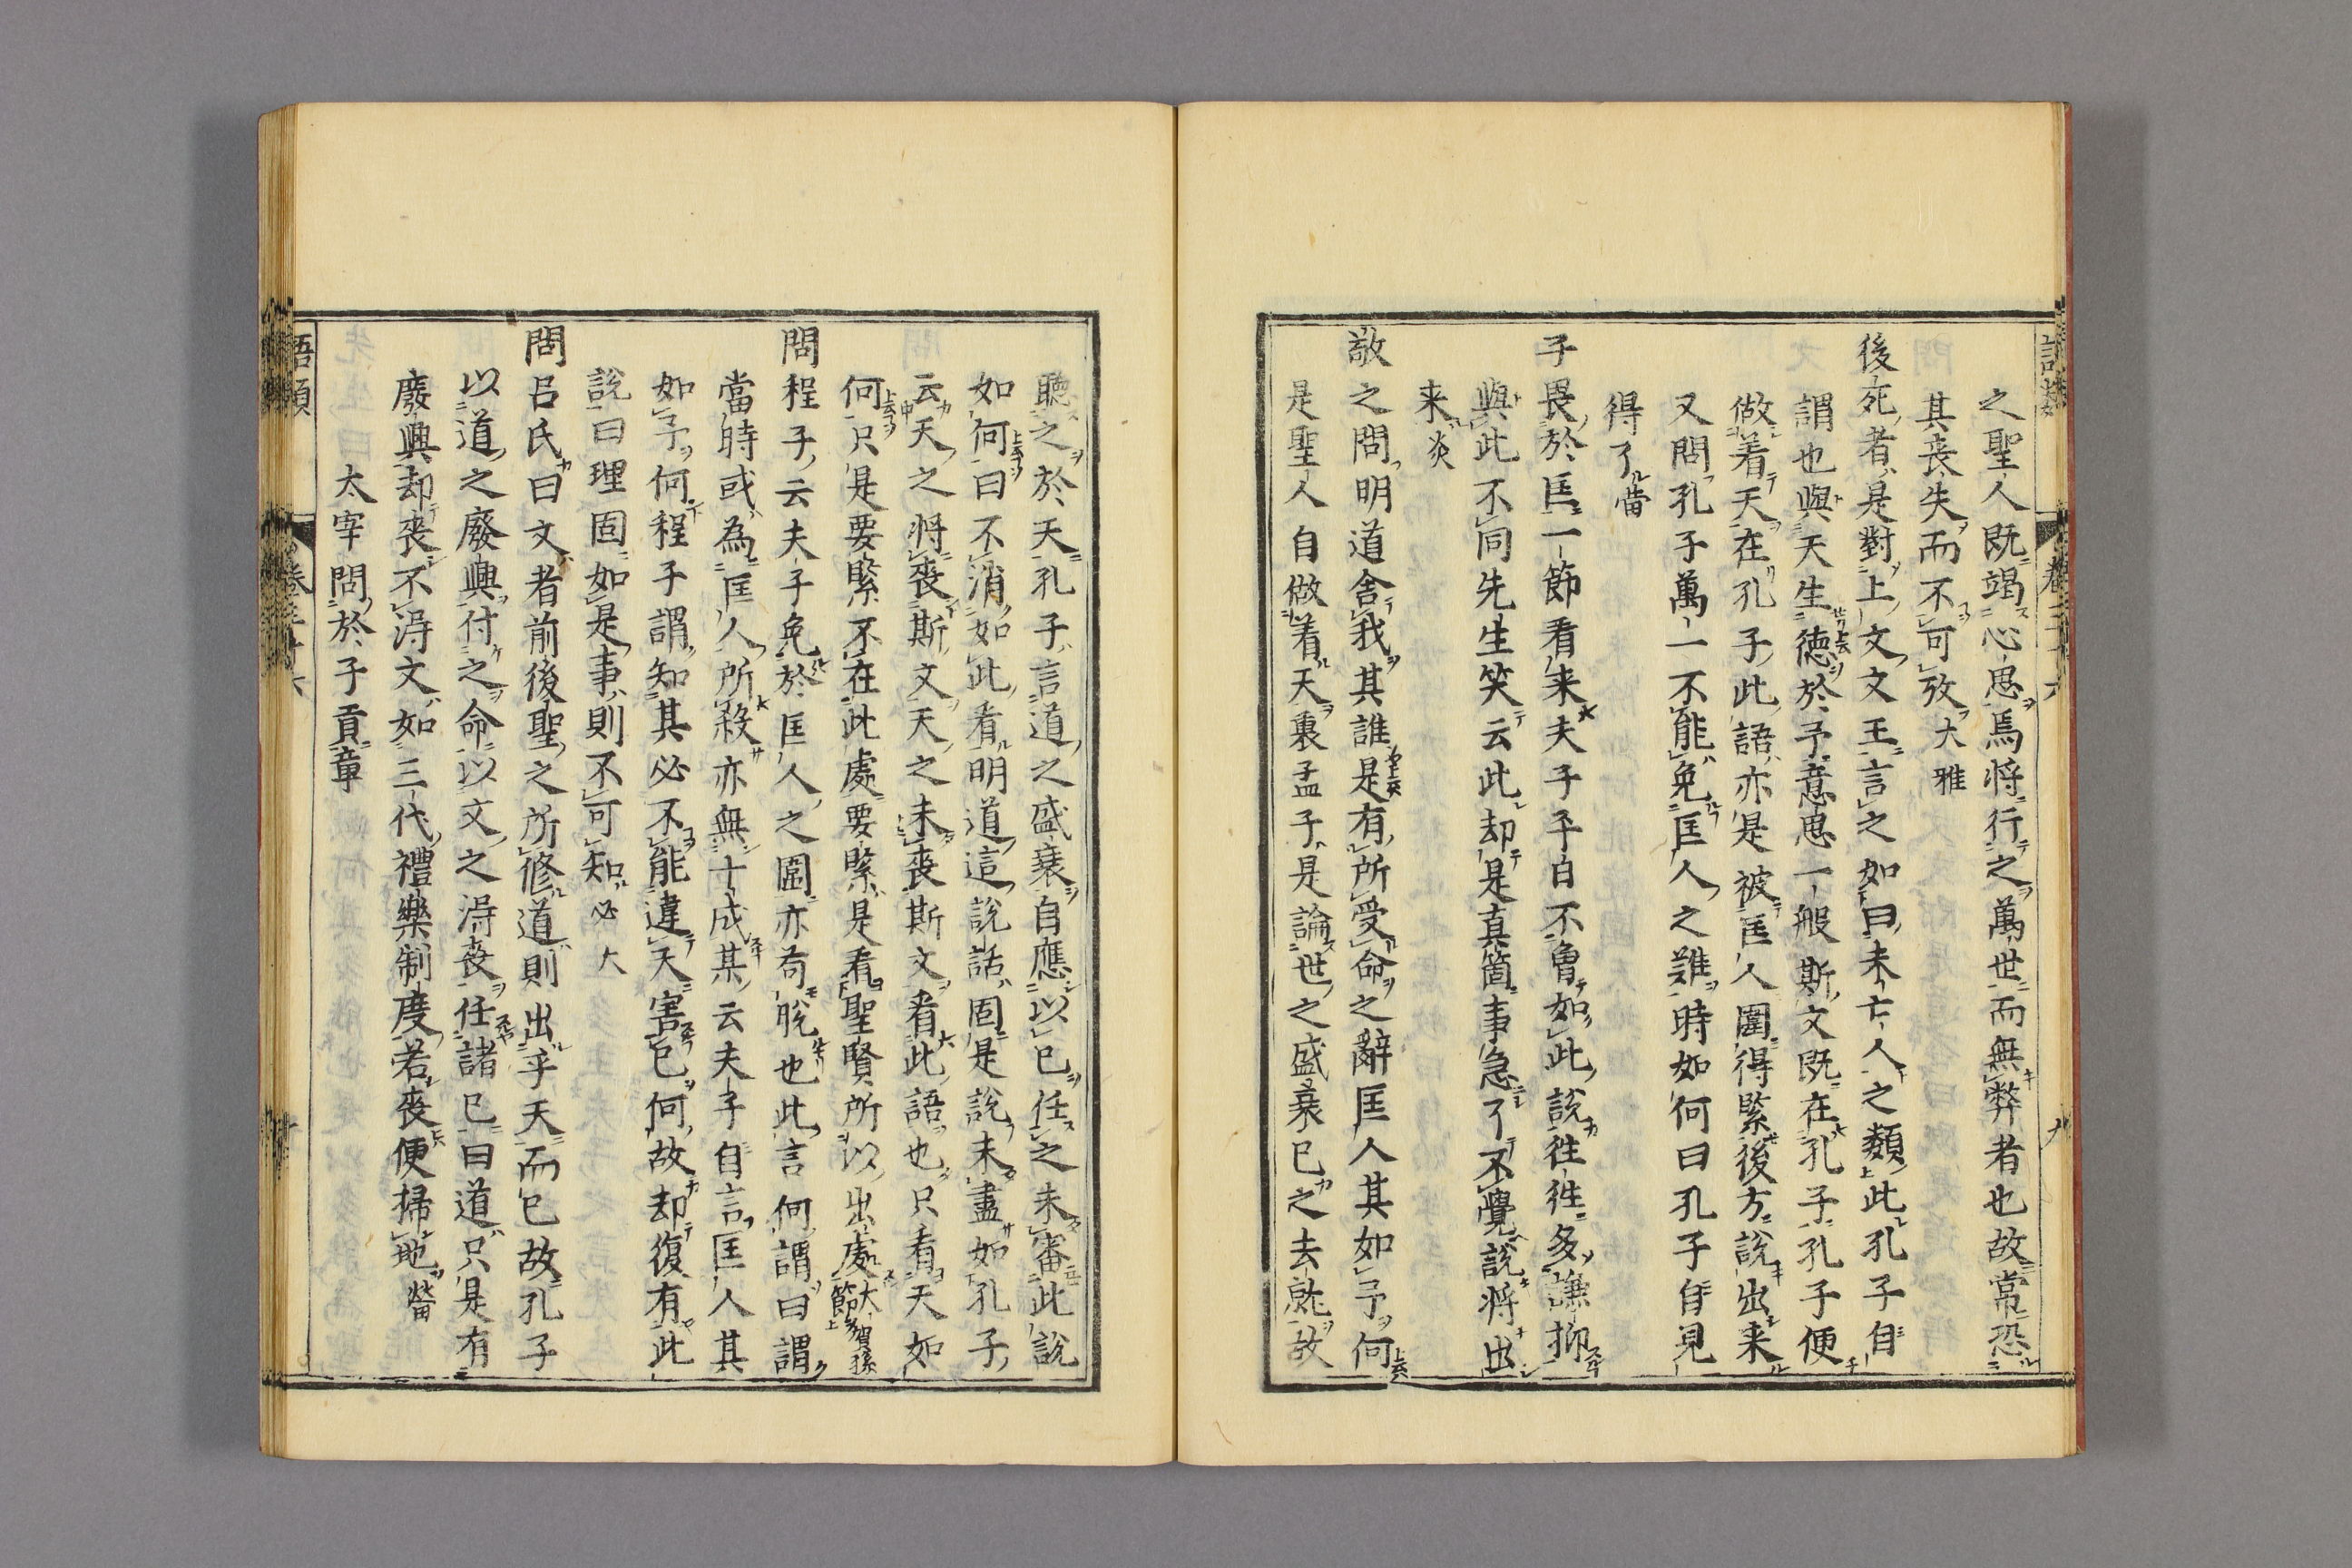 之聖人既竭心思焉将行之萬世而無弊者也故常恐
其喪失而不可攷大雅
後死者是對上文文王言之如曰未亡人之類此孔子自
謂也與天生徳於予意思一般斯文既在孔子孔子便
做着天在孔子此語亦是被匡人圍得緊後方説出来
又問孔子萬一不能免匡人之難時如何曰孔子自見
得了㽦
子畏於匡一節看来夫子平日不曽如此説徃徃多謙抑
與此不同先生笑云此却是真箇事急了不覺説将出
来炎
敬之問明道舎我其誰是有所受命之辭匡人其如予何
是聖人自做着天裏孟子是論世之盛衰已之去就故
聴之於天孔子言道之盛衰自應以已任之未審此説
如何曰不消如此看明道這説話固是説未盡如孔子
云天之将喪斯文天之未喪斯文看此語也只看天如
何只是要緊不在此處要緊是看聖賢所以出處大節賀孫
問程子云夫子免於匡人之圍亦苟脱也此言何謂曰謂
當時或為匡人所殺亦無十成某云夫子自言匡人其
如予何程子謂知其必不能違天害已何故却復有此
説曰理固如是事則不可知必大
問呂氏曰文者前後聖之所修道則出乎天而已故孔子
以道之廢興付之命以文之淂喪任諸已曰道只是有
廢興却喪不淂文如三代禮樂制度若喪便掃地㽦
太宰問於子貢章
語類
卷三十六